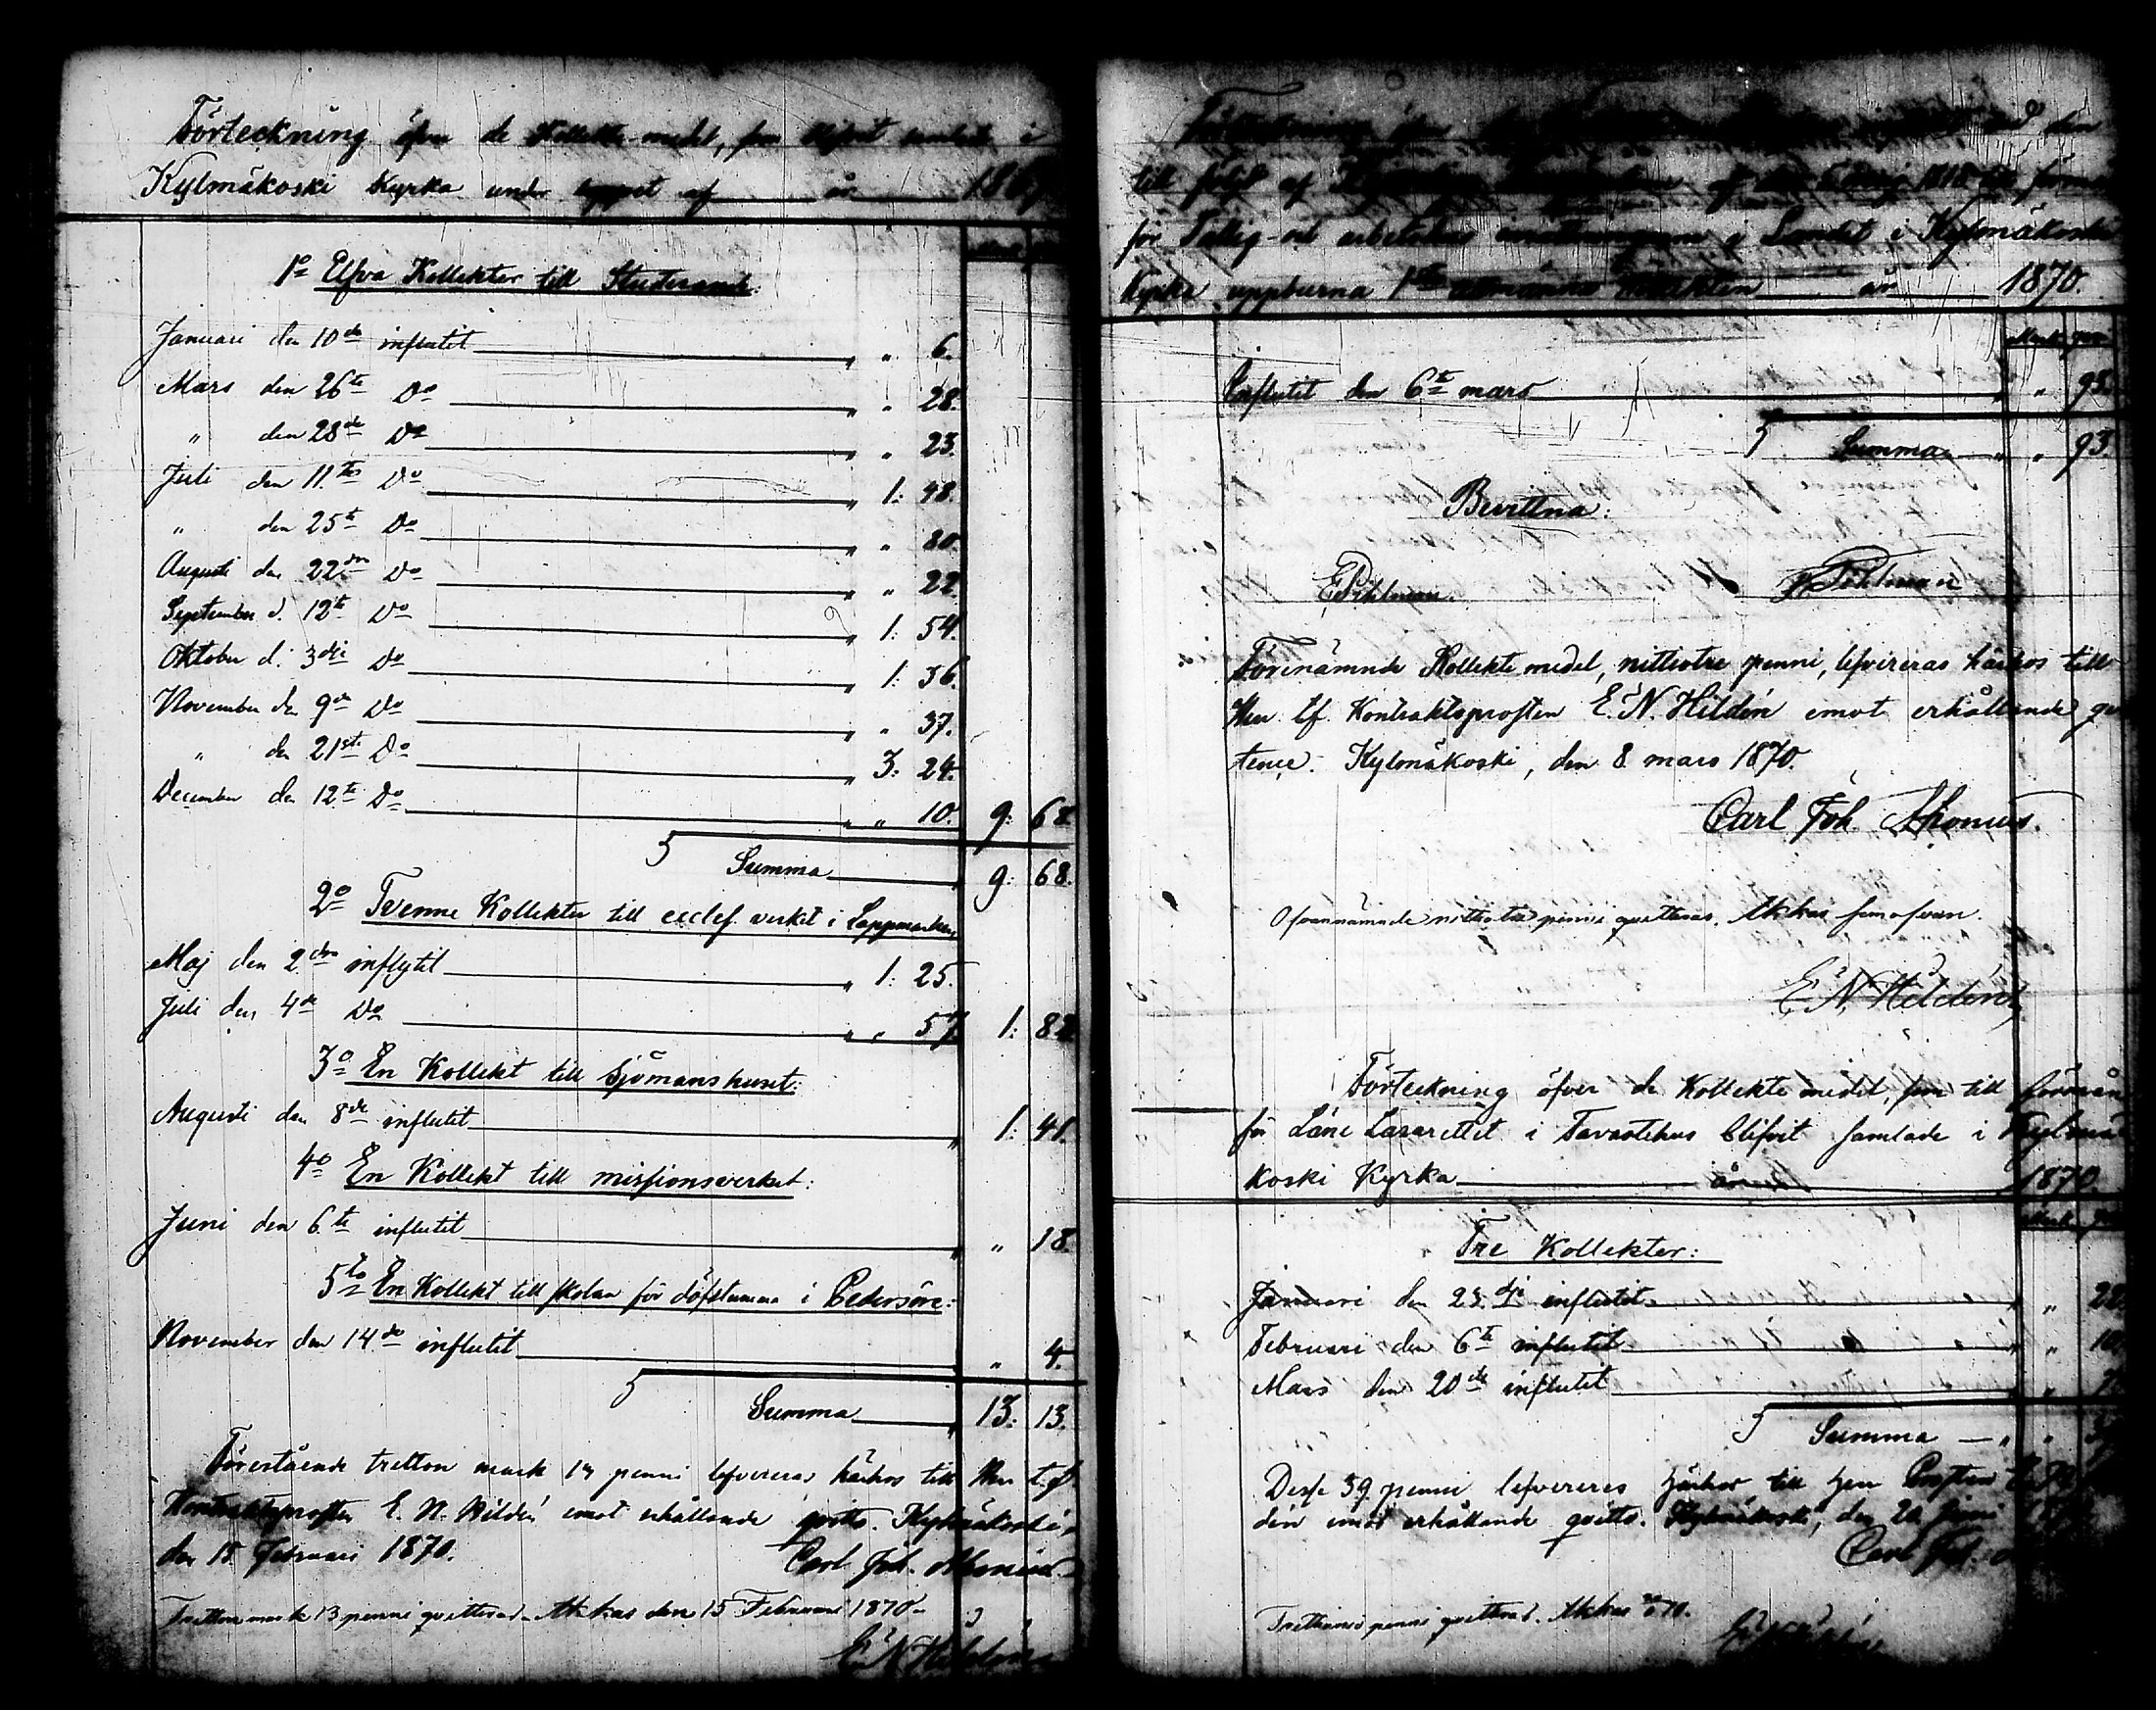 Förteckning öfver de Kollekte-medel, som blifvit samlade i
Kylmäkoski Kyrka under loppet af år 1869
1o Elfva Kollekter till Studerande:
Januari den 10de influtit " " 6.
Mars den 26te Do " " 28.
" den 28de Do " " 23.
Juli den 11te Do " 1: 48.
" den 25te Do " " 80.
Augusti den 22dra Do " " 22.
September d. 12te Do " 1: 54.
Oktober d. 3dje Do " 1: 36.
November den 9de Do " " 37.
" den 21sta Do " 3: 24.
December den 12te Do " " 10. 9: 68.
Summa " 9: 68.
2o Tvenne Kollekter till eccles. verket i Lappmarken
Maj den 2dra influtit " 1: 25.
Juli den 4de Do " " 57. 1: 82
3o En Kollekt till Sjömanshuset:
Augusti den 8de influtit " 1: 41.
4o En Kollekt till missionsverket:
Juni den 6te influtit " " 18.
5to En Kollekt till skolan för döfstumma i Pedersöre:
November den 14de influtit " " 4.
Summa " 13: 13.
Förestående tretton mark 13 penni lefvereras härhos till Herr t.f.
Kontraktsprosten E. N. Hildén emot erhållande qvitto. Kylmäkoski,
den 15 Februari 1870. Carl Joh. Ahonius
Tretton mark 13 penni qvitteras. Akkas den 15 Februari 1870.
E. N. Hildén
till följd af
för Fattig- och arbets i Landet i Kylmäkoski
Kyrka uppburna 1sta Kollekten år 1870.
Mark pen
Influtit den 6te mars " " 93.
Summa " " 93.
Bevittna:
E Pihlman. Pihlman
Förenämnde Kollekte medel, nittiotre penni, lefvereras härhos till
Herr t.f. Kontraktsprosten E. N. Hildén emot erhållande qvit
tence. Kylmäkoski, den 8 mars 1870.
Carl Joh. Ahonius.
Ofvannämnde nittiotre penni qvitteras. Akkas som ofvan.
E. N. Hildén
Förteckning öfver de Kollekte medel, som till förmån
för Läne Lasarettet i Tavastehus blifvit samlade i Kylmä
koski Kyrka år 1870.
Tre Kollekter:
Januari den 23dje influtit " " 22.
Februari den 6te influtit " " 10.
Mars den 20de influtit " " 7.
Summa " "
Desse 39 penni lefvereres härhos till Herr Prosten Hil
dén emot erhållande qvitto. Kylmäkoski, den 20 Juni 1870
Carl Joh.
Trettionio penni qvitteras. Akkas